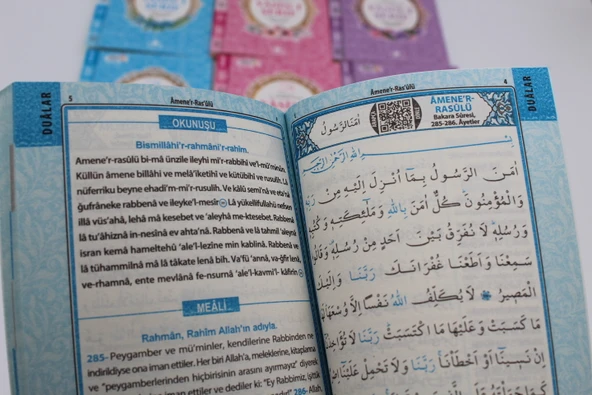 DUÂLAR
5
Âmene'r-Rasûlü
OKUNUŞU
Bismillâhi'r-rahmâni'r-rahîm.
Amene'r-rasûlü bi-mâ ünzile ileyhi mi'r-rabbihi ve'l-mü'minûn.
Küllün âmene billâhi ve melâ'iketihî ve kütübihî ve rusulih. Lâ
nüferriku beyne ehadi'm-mi'r-rusulih. Ve kâlû semi'nâ ve eta'nâ
ğufrâneke rabbenâ ve ileyke'l-mesîr Lâ yükellifullahü nefsen
illâ vüs'ahâ, lehâ mâ kesebet ve 'aleyhâ me-ktesebet. Rabbenâ
lâ tu'âhiznâ in-nesînâ ev ahta'nâ. Rabbenâ ve lâ tahmil 'aleynâ
isran kemâ hameltehû 'ale'l-lezîne min kablinâ. Rabbenâ ve
lâ tühammilnâ mâ lâ tâkate lenâ bih. Va'fü 'annâ, va-ğfir lenâ,
ve-rhamnâ, ente mevlânâ fe-nsurnâ 'ale'l-kavmi'l-kâfirîn
MEÂLİ
Rahmân, Rahîm Allah'ın adıyla.
285- Peygamber ve mü'minler, kendilerine Rabbinden ne
indirildiyse ona iman ettiler. Her biri Allah'a, meleklerine, kitaplarına
ve "peygamberlerinden hiçbirisinin arasını ayırmayız" diyerek
iman ettiler ve dediler ki: "Ey Rabbimiz, işittik
286- Allah
4
Âmene'r-Rasûlü
DUÂLAR
اٰمَنَ الرَّسُولُ
ÂMENE'R-
RASÛLÜ
Bakara Sûresi,
285-286. Âyetler
بِسْمِ اللهِ الرَّحْمٰنِ الرَّحِيمِ
اٰمَنَ الرَّسُولُ بِمَا اُنْزِلَ اِلَيْهِ مِنْ
وَالْمُؤْمِنُونَ كُلٌّ اٰمَنَ بِاللهِ وَمَلٰٓئِكَتِهِ وَكُتُبِهِ
وَرُسُلِهِ لَا نُفَرِّقُ بَيْنَ اَحَدٍ مِنْ رُسُلِهِ وَقَالُوا
سَمِعْنَا وَاَطَعْنَا غُفْرَانَكَ رَبَّنَا وَاِلَيْكَ
الْمَصِيرُ لَا يُكَلِّفُ اللهُ نَفْسًا اِلَّا وُسْعَهَا
مَا كَسَبَتْ وَعَلَيْهَا مَا اكْتَسَبَتْ رَبَّنَا لَا تُؤَاخِذْنَا
اِنْ نَسِينَا اَوْ اَخْطَأْنَا رَبَّنَا وَلَا تَحْمِلْ عَلَيْنَا